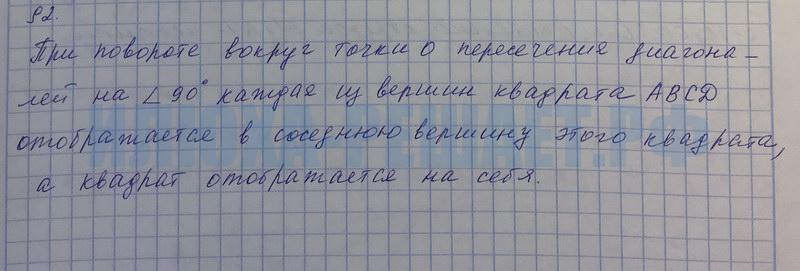 92.
При повороте вокруг точки О пересечения диагона-
лей на ∠90° каждая из вершин квадрата ABCD
отображается в соседнюю вершину этого квадрата,
а квадрат отображается на себя.